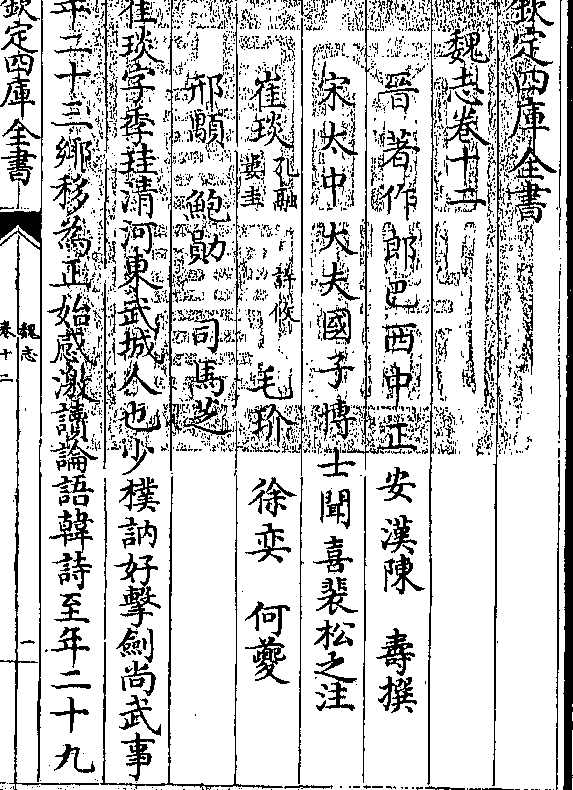 欽定四庫全書
魏志卷十二
晉著作郎巴西中正安漢陳壽撰
宋太中大夫國子博士聞喜裴松之注
崔琰孔融許攸婁圭 毛玠 徐奕 何夔
邢顒 鮑勛 司馬芝
崔琰字季珪清河東武城人也少樸訥好擊劍尚武事
年二十三鄉移為正始感激讀論語韓詩至年二十九
欽定四庫全書
魏志
卷十二
一